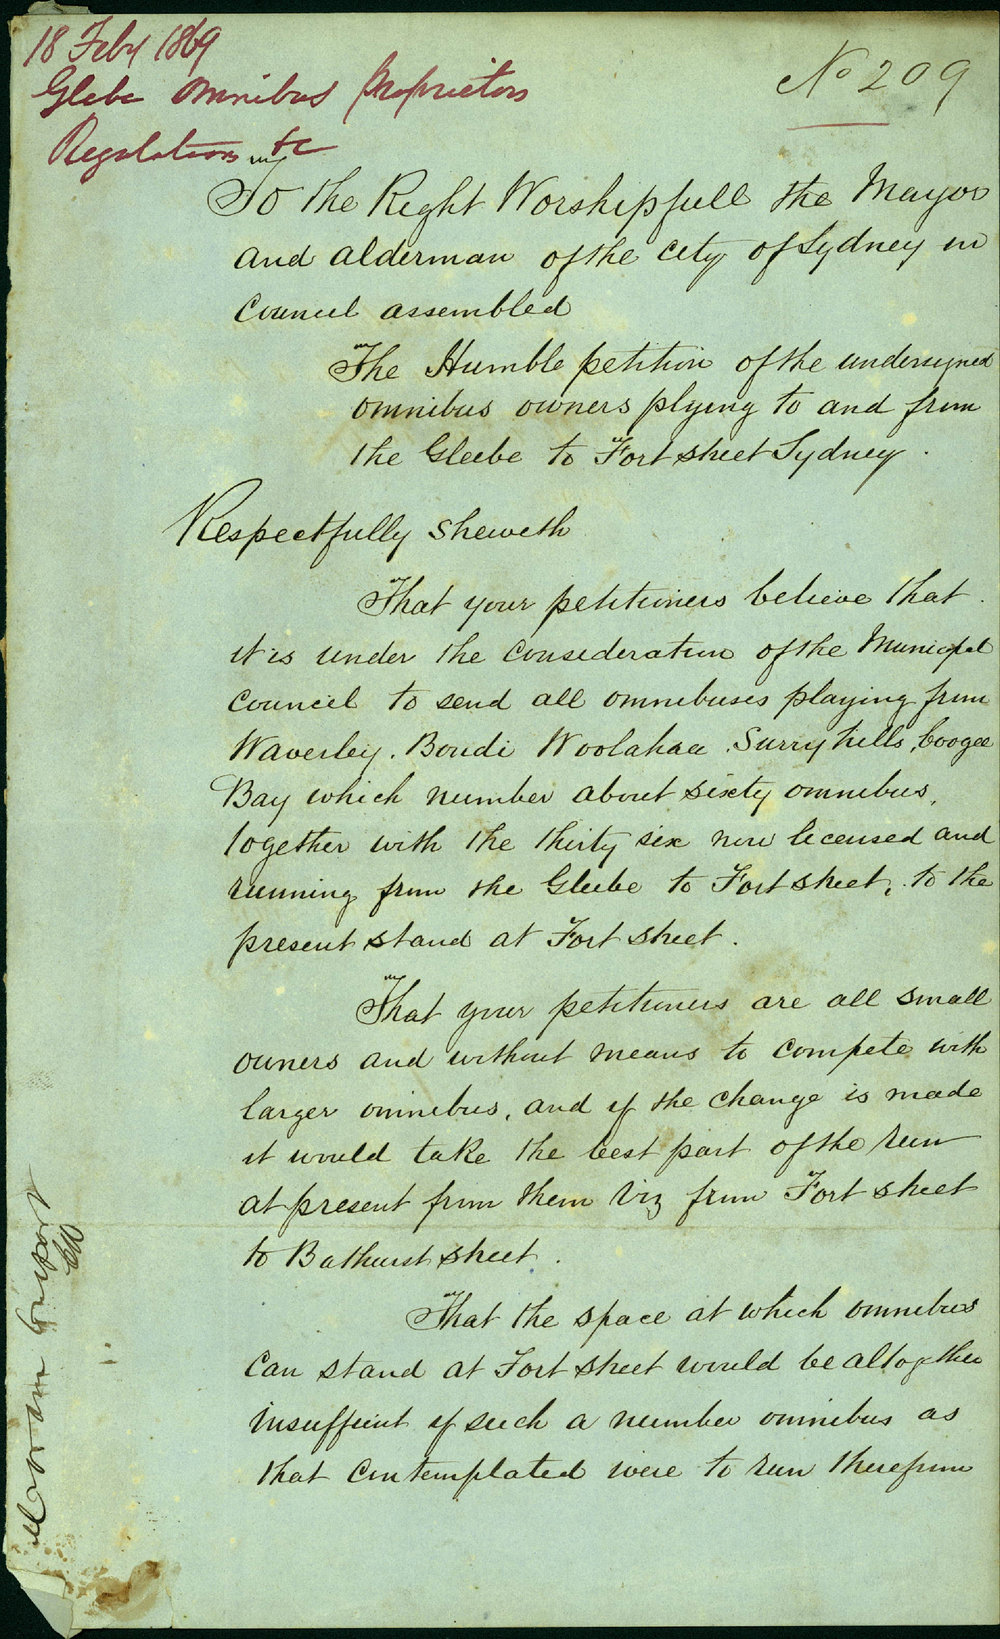 18 Feby 1869
Glebe Omnibus Proprietors
Regulations &c
No 209
To the Right Worshipfull the Mayor
and alderman of the city of Sydney in
Council assembled
The Humble petition of the undersigned
omnibus owners plying to and from
the Gleebe to Fort street Sydney.
Respectfully sheweth
That your petitioners believe that
it is under the consideration of the Municipal
council to send all omnibuses playing from
Waverley. Bondi Woolahaa. Surry hills, Coogee
Bay which number about sixty omnibus,
together with the thirty six now licensed and
running from the Gleebe to Fort street, to the
present stand at Fort street.
That your petitioners are all small
owners and without means to compete with
larger omnibus, and if the change is made
it would take the best part of the run
at present from them Viz from Fort street
to Bathurst street.
That the space at which omnibus
can stand at Fort street would be altogether
insuffient if such a number omnibus as
that contemplated were to run therefrom
report